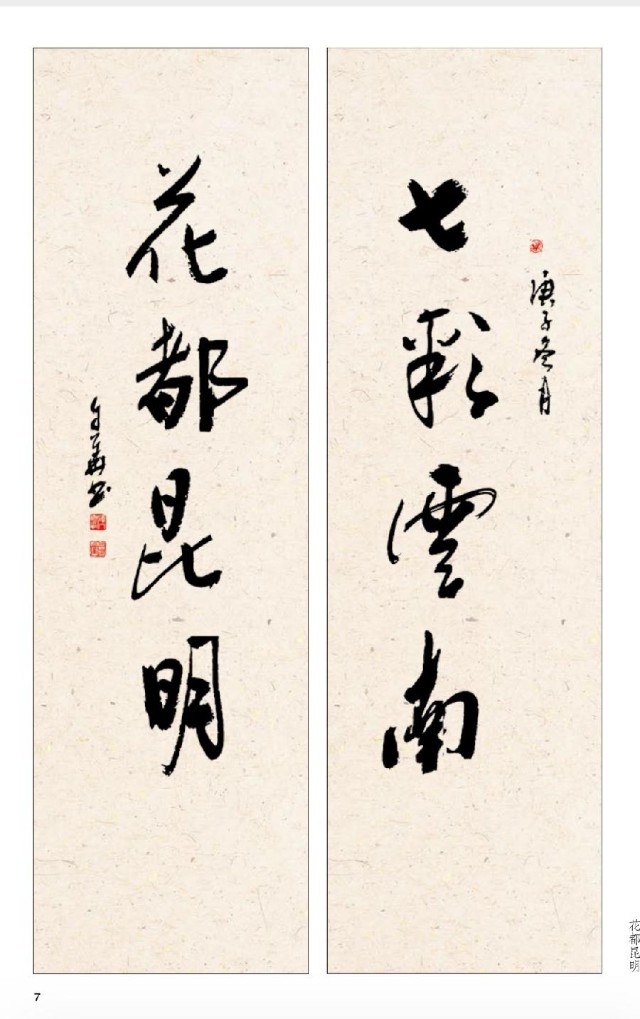 庚子冬月
七彩雲南
花都昆明
文華书
花都昆明
7